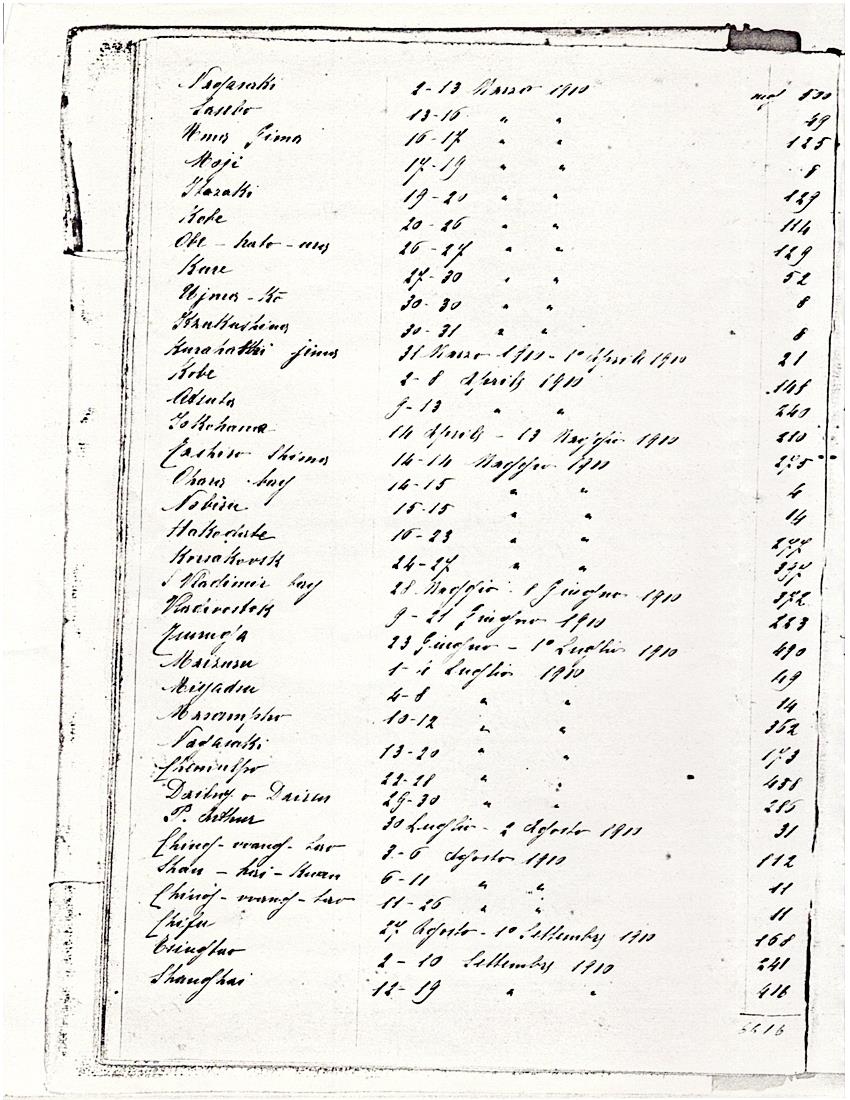 Nagasaki 2-13 Marzo 1910 mgl 530
Sasebo 13-16 " " 49
16-17 " " 125
Moji 17-19 " " 8
Itozaki 19-20 " " 129
Kobe 20-26 " " 114
26-27 " " 129
Kure 27-30 " " 52
30-30 " " 8
30-31 " " 8
jima 31 Marzo 1910 - 1° Aprile 1910 21
Kobe 2-8 Aprile 1910 148
Atsuta 9-13 " " 240
Iokohama 14 Aprile - 13 Maggio 1910 210
Shima 14-14 Maggio 1910 275
bay 14-15 " " 4
15-15 " " 14
Hakodate 16-23 " " 277
Korsakovsk 24-27 " "
S Vladimir bay 28 Maggio - 8 Giugno 1910 372
Vladivostok 9-21 Giugno 1910 223
23 Giugno - 1° Luglio 1910 490
Maizuru 1-4 Luglio 1910
Miyadsu 4-8 " " 14
Masampho 10-12 " " 362
Nagasaki 13-20 " " 173
Chemulpo 22-28 " " 458
o Dairen 29-30 " " 286
P. Arthur 30 Luglio - 2 Agosto 1910 31
Ching-wang-tao 3-6 Agosto 1910 112
Shan-hai-Kuan 6-11 " " 11
Ching-wang-tao 11-26 " " 11
Chifu 27 Agosto - 1° Settembre 1910 168
Tsingtao 2-10 Settembre 1910 241
Shanghai 12-19 " " 416